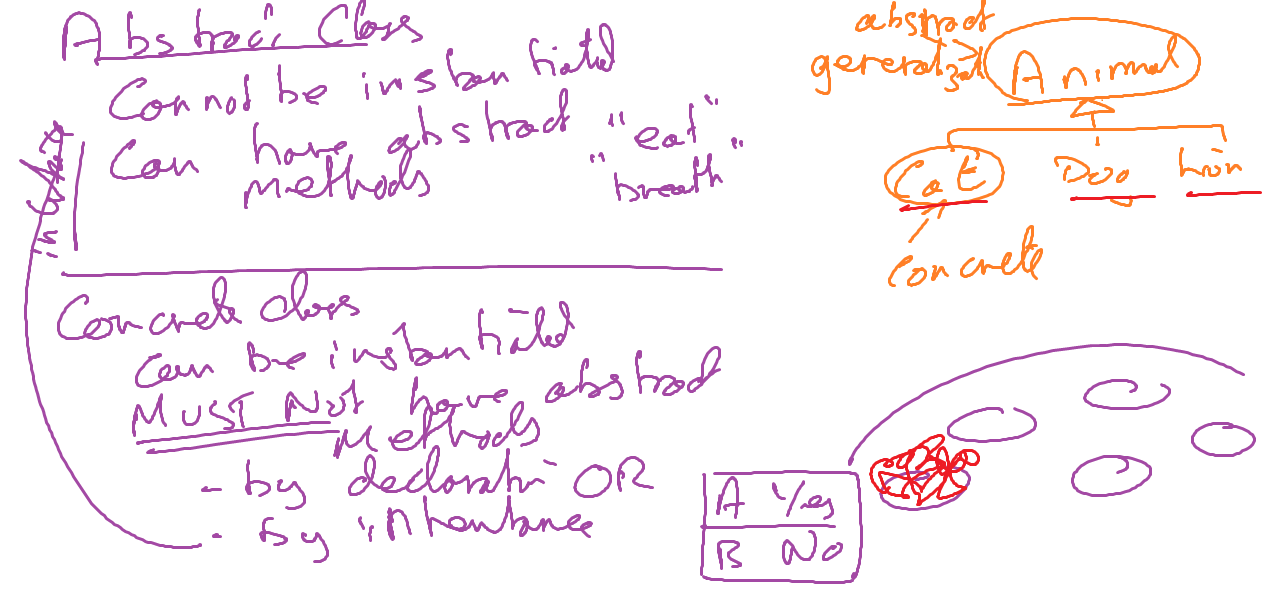 Abstract Class
Cannot be instantiated
Can have abstract
methods
"eat"
"breath"
inherit
Concrete class
Can be instantiated
MUST NOT have abstract
Methods
- by declaration OR
- by inheritance
A Yes
B No
abstract
Animal
Cat
Dog
Lion
Concrete